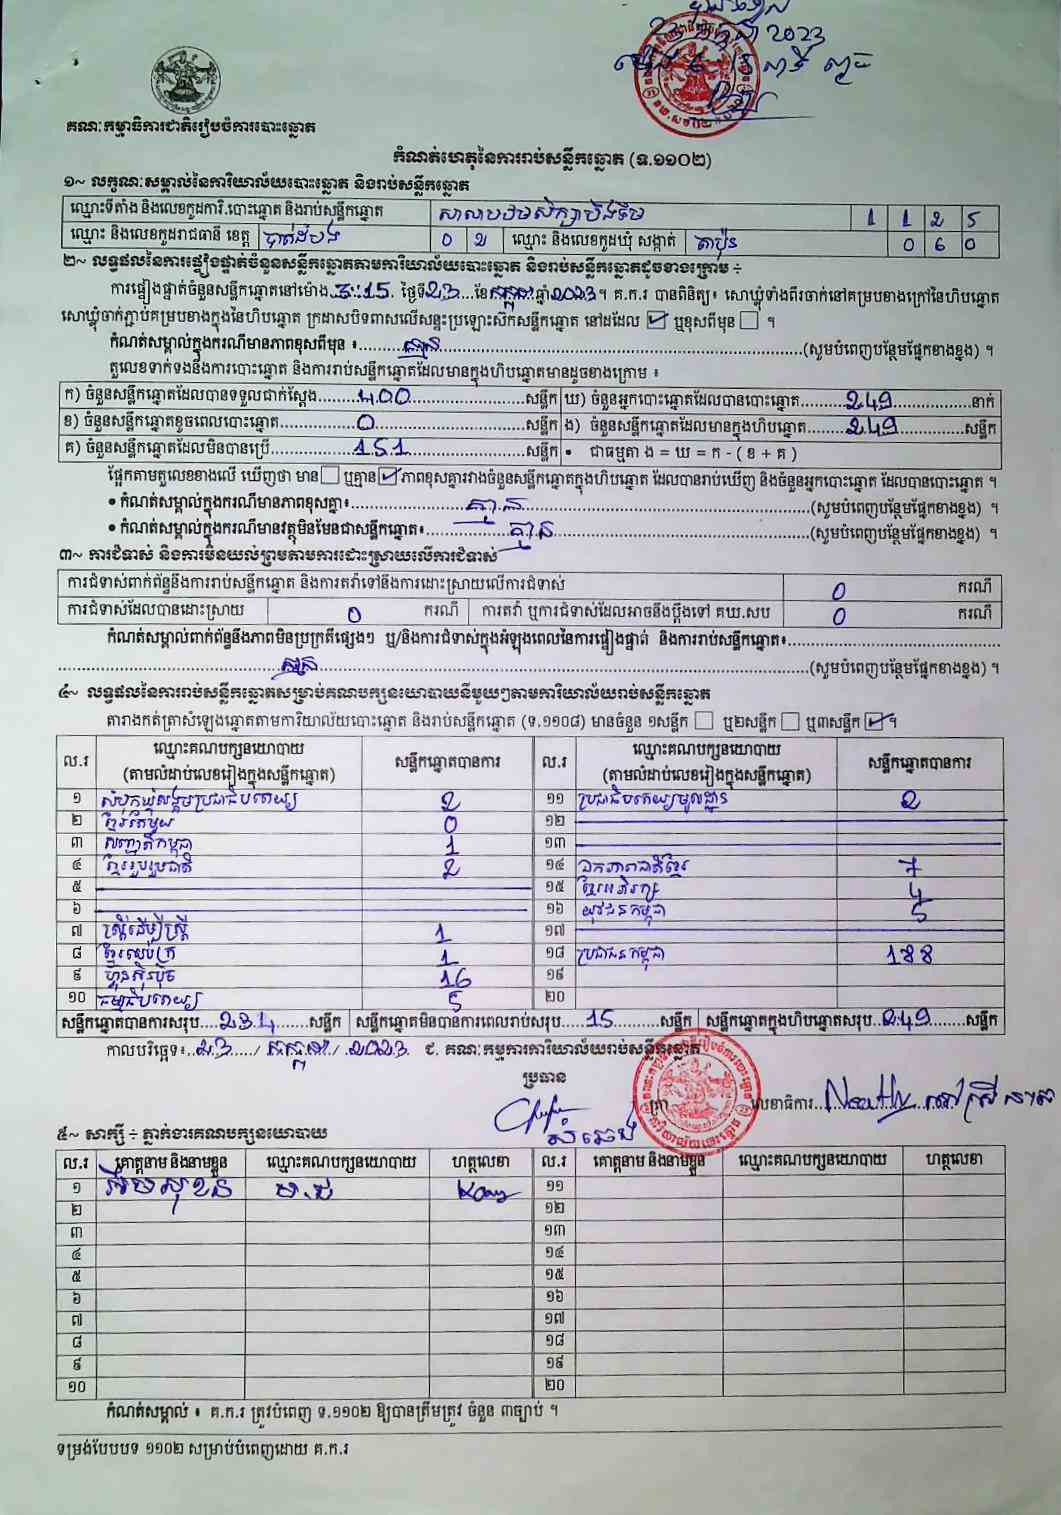 2023
គណៈកម្មាធិការជាតិរៀបចំការបោះឆ្នោត
កំណត់ហេតុនៃការរាប់សន្លឹកឆ្នោត (ទ.១១០២)
១~ លក្ខណៈសម្គាល់នៃការិយាល័យបោះឆ្នោត និងរាប់សន្លឹកឆ្នោត
ឈ្មោះទីតាំង និងលេខកូដការិ.បោះឆ្នោត និងរាប់សន្លឹកឆ្នោត សាលាបឋមសិក្សាបឹងទឹម 1 1 2 5
ឈ្មោះ និងលេខកូដរាជធានី ខេត្ត បាត់ដំបង 0 2 ឈ្មោះ និងលេខកូដឃុំ សង្កាត់ តាប៉ុន 0 6 0
២~ លទ្ធផលនៃការផ្ទៀងផ្ទាត់ចំនួនសន្លឹកឆ្នោតតាមការិយាល័យបោះឆ្នោត និងរាប់សន្លឹកឆ្នោតដូចខាងក្រោម ÷
ការផ្ទៀងផ្ទាត់ចំនួនសន្លឹកឆ្នោតនៅម៉ោង 3:15 ថ្ងៃទី 23 ខែ កក្កដា ឆ្នាំ 2023 ។ គ.ក.រ បានពិនិត្យ៖ សោឃ្លុំទាំងពីរចាក់នៅគម្របខាងក្រៅនៃហិបឆ្នោត
សោឃ្លុំចាក់ភ្ជាប់គម្របខាងក្នុងនៃហិបឆ្នោត ក្រដាសបិទពាសលើសន្ទះប្រឡោះស៊កសន្លឹកឆ្នោត នៅដដែល ☑ ឬខុសពីមុន ☐ ។
កំណត់សម្គាល់ក្នុងករណីមានភាពខុសពីមុន ៖ គ្មាន (សូមបំពេញបន្ថែមផ្នែកខាងខ្នង) ។
តួលេខទាក់ទងនឹងការបោះឆ្នោត និងការរាប់សន្លឹកឆ្នោតដែលមានក្នុងហិបឆ្នោតមានដូចខាងក្រោម ៖
ក) ចំនួនសន្លឹកឆ្នោតដែលបានទទួលជាក់ស្តែង 400 សន្លឹក ឃ) ចំនួនអ្នកបោះឆ្នោតដែលបានបោះឆ្នោត 249 នាក់
ខ) ចំនួនសន្លឹកឆ្នោតខូចពេលបោះឆ្នោត 0 សន្លឹក ង) ចំនួនសន្លឹកឆ្នោតដែលមានក្នុងហិបឆ្នោត 249 សន្លឹក
គ) ចំនួនសន្លឹកឆ្នោតដែលមិនបានប្រើ 151 សន្លឹក • ជាធម្មតា ង = ឃ = ក - ( ខ + គ )
ផ្អែកតាមតួលេខខាងលើ ឃើញថា មាន ☐ ឬគ្មាន ☑ ភាពខុសគ្នារវាងចំនួនសន្លឹកឆ្នោតក្នុងហិបឆ្នោត ដែលបានរាប់ឃើញ និងចំនួនអ្នកបោះឆ្នោត ដែលបានបោះឆ្នោត ។
• កំណត់សម្គាល់ក្នុងករណីមានភាពខុសគ្នា៖ គ្មាន (សូមបំពេញបន្ថែមផ្នែកខាងខ្នង) ។
• កំណត់សម្គាល់ក្នុងករណីមានវត្ថុមិនមែនជាសន្លឹកឆ្នោត៖ គ្មាន (សូមបំពេញបន្ថែមផ្នែកខាងខ្នង) ។
៣~ ការជំទាស់ និងការមិនយល់ព្រមតាមការដោះស្រាយលើការជំទាស់
ការជំទាស់ពាក់ព័ន្ធនឹងការរាប់សន្លឹកឆ្នោត និងការតវ៉ាទៅនឹងការដោះស្រាយលើការជំទាស់ 0 ករណី
ការជំទាស់ដែលបានដោះស្រាយ 0 ករណី ការតវ៉ា ឬការជំទាស់ដែលអាចនឹងប្តឹងទៅ គឃ.សប 0 ករណី
កំណត់សម្គាល់ពាក់ព័ន្ធនឹងភាពមិនប្រក្រតីផ្សេងៗ ឬ/និងការជំទាស់ក្នុងអំឡុងពេលនៃការផ្ទៀងផ្ទាត់ និងការរាប់សន្លឹកឆ្នោត៖
គ្មាន (សូមបំពេញបន្ថែមផ្នែកខាងខ្នង) ។
៤~ លទ្ធផលនៃការរាប់សន្លឹកឆ្នោតសម្រាប់គណបក្សនយោបាយនីមួយៗតាមការិយាល័យរាប់សន្លឹកឆ្នោត
តារាងកត់ត្រាសំឡេងឆ្នោតតាមការិយាល័យបោះឆ្នោត និងរាប់សន្លឹកឆ្នោត (ទ.១១០៨) មានចំនួន ១សន្លឹក ☐ ឬ២សន្លឹក ☐ ឬ៣សន្លឹក ☑ ។
ល.រ ឈ្មោះគណបក្សនយោបាយ (តាមលំដាប់លេខរៀងក្នុងសន្លឹកឆ្នោត) សន្លឹកឆ្នោតបានការ ល.រ ឈ្មោះគណបក្សនយោបាយ (តាមលំដាប់លេខរៀងក្នុងសន្លឹកឆ្នោត) សន្លឹកឆ្នោតបានការ
១ សំបុកឃ្មុំសង្គមប្រជាធិបតេយ្យ 2 ១១ ប្រជាធិបតេយ្យមូលដ្ឋាន 2
២ ខ្មែរតែមួយ 0 ១២
៣ សញ្ជាតិកម្ពុជា 1 ១៣
៤ ខ្មែររួបរួមជាតិ 2 ១៤ ឯកភាពជាតិខ្មែរ 7
៥ ១៥ ខ្មែរអភិរក្ស 4
៦ ១៦ យុវជនកម្ពុជា 5
៧ ស្ត្រីដើម្បីស្ត្រី 1 ១៧
៨ ខ្មែរឈប់ក្រ 1 ១៨ ប្រជាជនកម្ពុជា 188
៩ ហ៊្វុនស៊ិនប៉ិច 16 ១៩
១០ ធម្មាធិបតេយ្យ 5 ២០
សន្លឹកឆ្នោតបានការសរុប 234 សន្លឹក សន្លឹកឆ្នោតមិនបានការពេលរាប់សរុប 15 សន្លឹក សន្លឹកឆ្នោតក្នុងហិបឆ្នោតសរុប 249 សន្លឹក
កាលបរិច្ឆេទ៖ 23 / កក្កដា / 2023 ជ. គណៈកម្មការការិយាល័យរាប់សន្លឹកឆ្នោត
ប្រធាន
ត្រា លេខាធិការ
៥~ សាក្សី ÷ ភ្នាក់ងារគណបក្សនយោបាយ
ល.រ គោត្តនាម និងនាមខ្លួន ឈ្មោះគណបក្សនយោបាយ ហត្ថលេខា ល.រ គោត្តនាម និងនាមខ្លួន ឈ្មោះគណបក្សនយោបាយ ហត្ថលេខា
១ ១១
២ ១២
៣ ១៣
៤ ១៤
៥ ១៥
៦ ១៦
៧ ១៧
៨ ១៨
៩ ១៩
១០ ២០
កំណត់សម្គាល់ ៖ គ.ក.រ ត្រូវបំពេញ ទ.១១០២ ឱ្យបានត្រឹមត្រូវ ចំនួន ៣ច្បាប់ ។
ទម្រង់បែបបទ ១១០២ សម្រាប់បំពេញដោយ គ.ក.រ